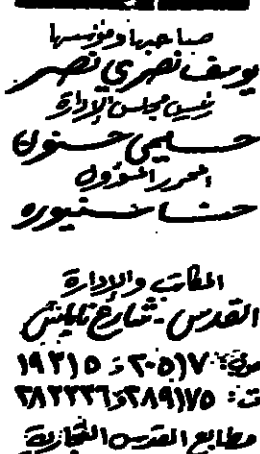 صاحبها ومؤسسها
يوسف نصري نصر
رئيس مجلس الإدارة
حسليمي حسنون
المحرر المسؤول
حنا سنيوره
المكاتب والإدارة
القدس - شارع نابلس
ص.ب: ٢٠٥١٧ ـ ١٩٢١٥
ت: ٢٨٩١٧٥ـ٢٨٢٢٣٦
مطابع القدس التجارية